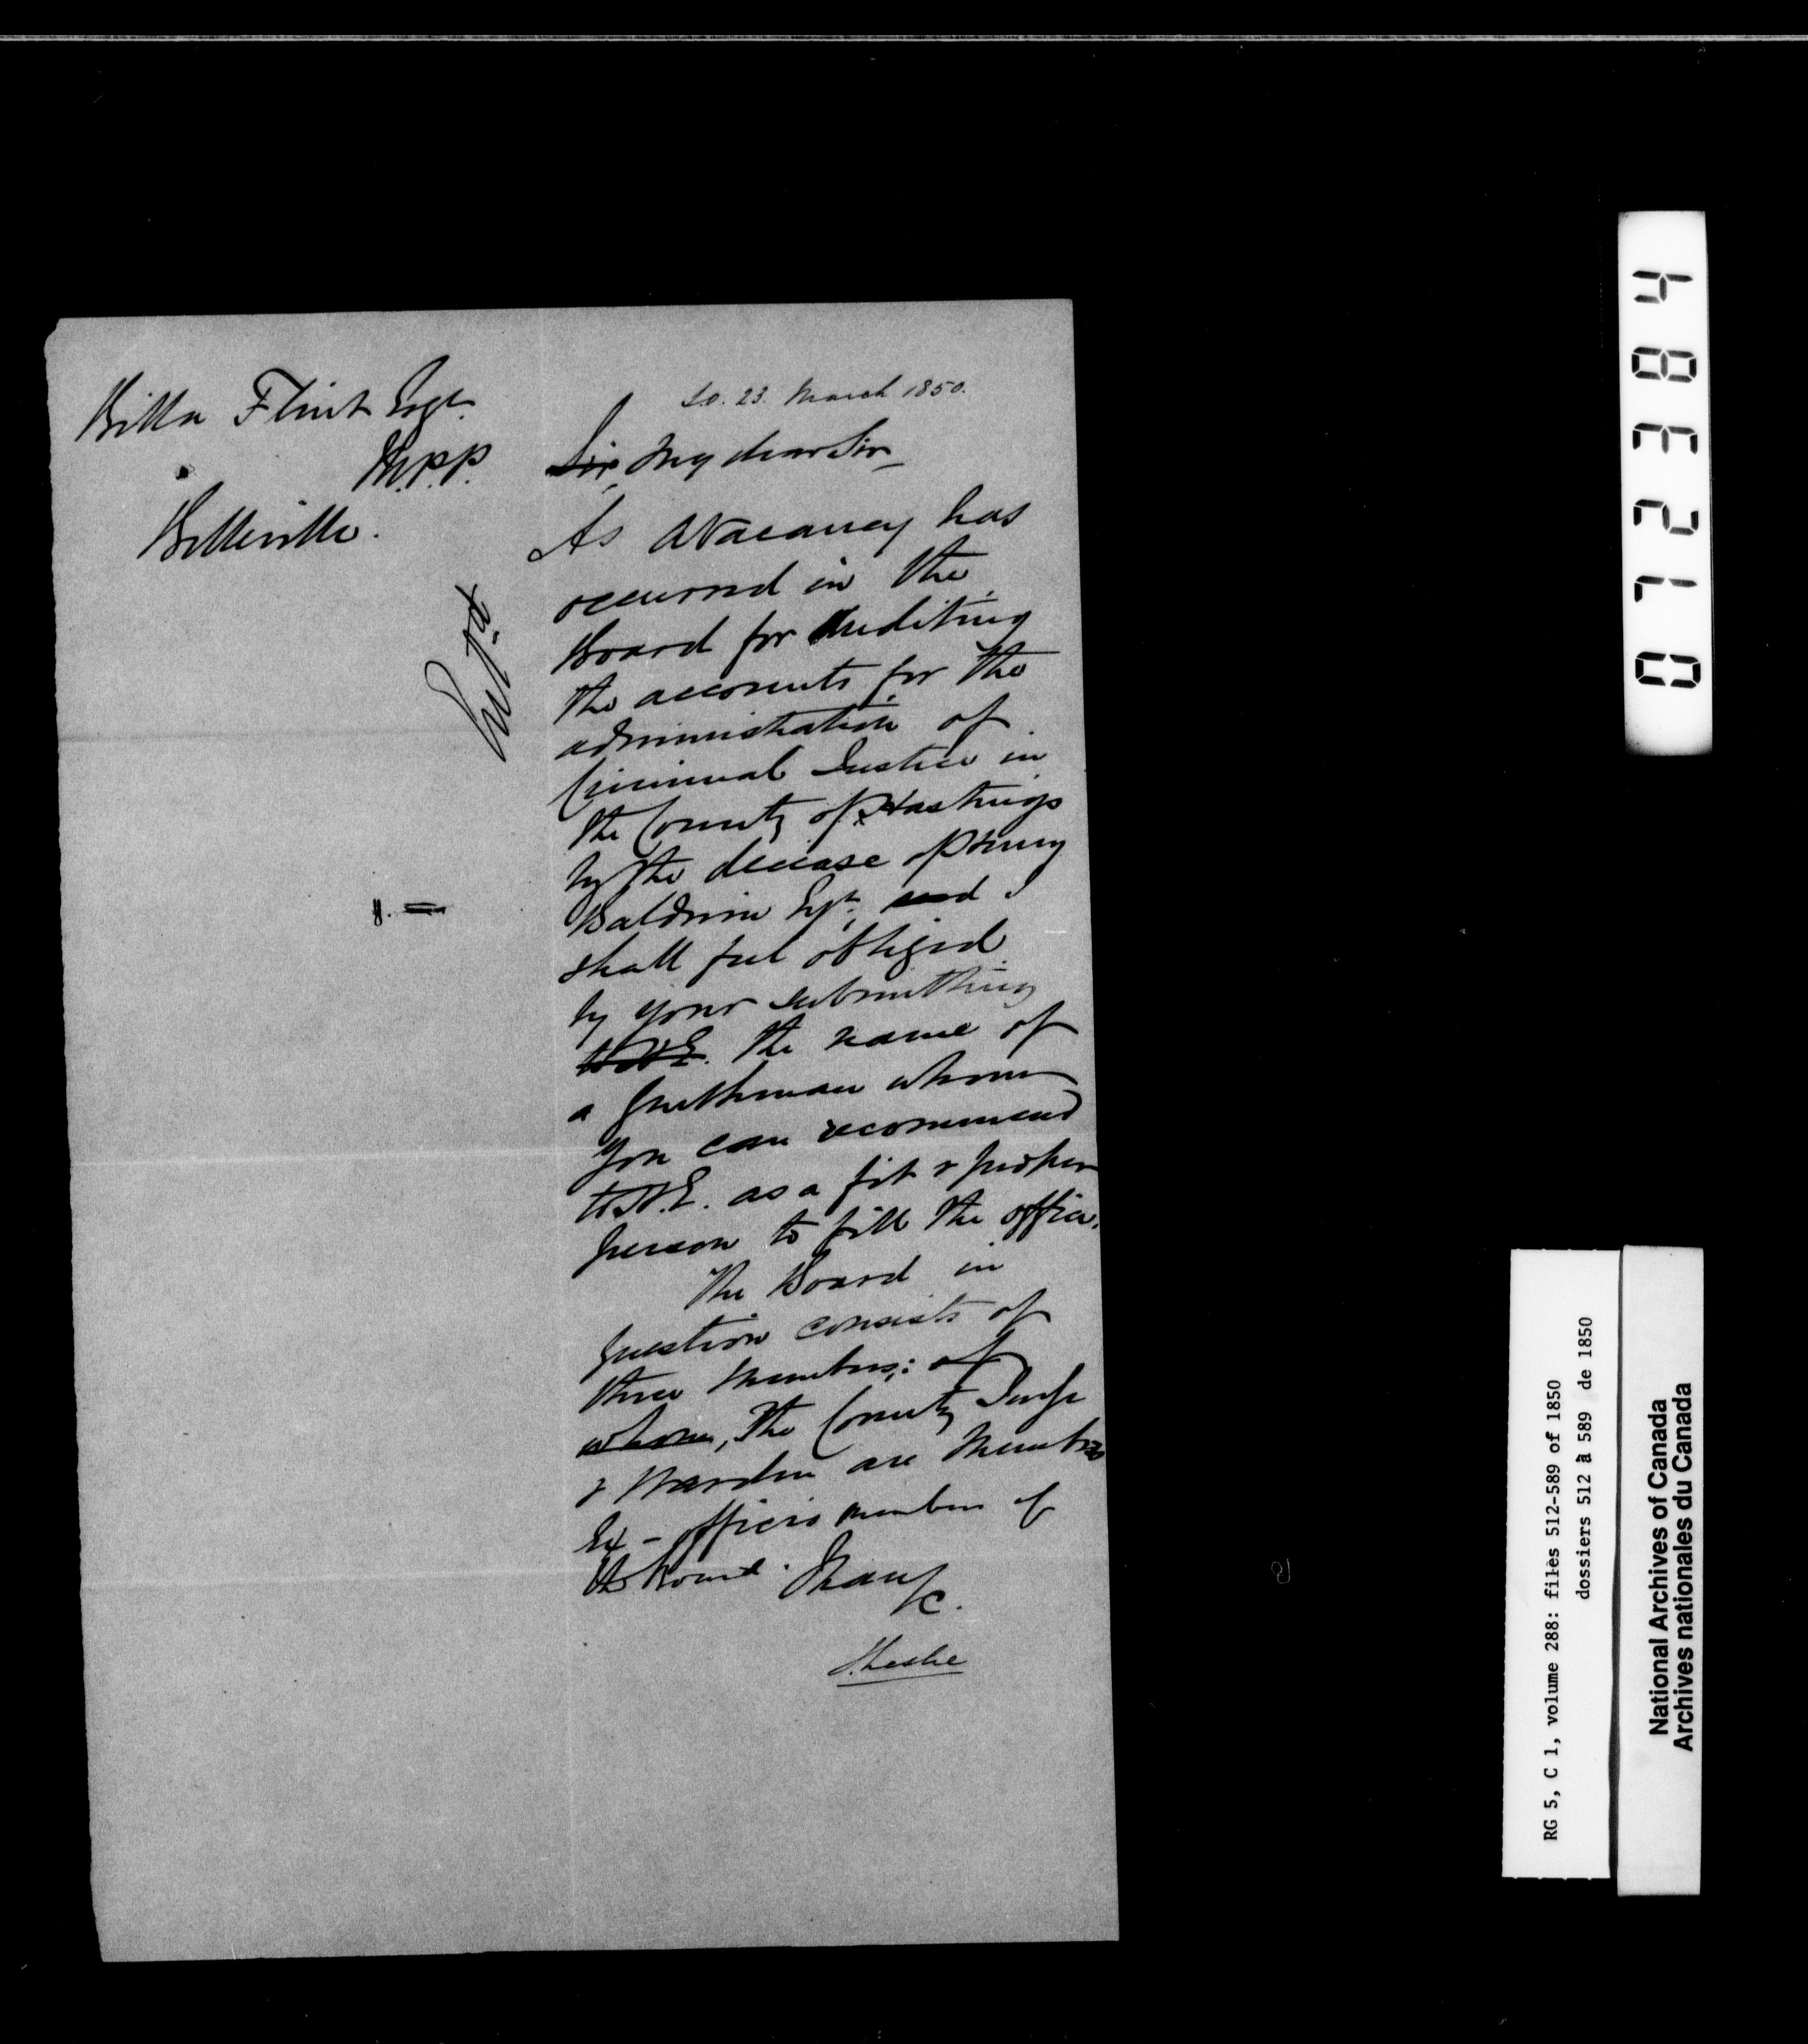 Billa Flint Esqr.
M.P.P.
Belleville.
Ent^d
S.O. 23. March 1850.
Sir, My dear Sir,
As a Vacancy has
occurred in the
Board for Auditing
the accounts for the
administration of
Criminal Justice in
the County of Hastings
by the decease of Henry
Baldwin Esqr, and I
shall feel obliged
by your submitting
to H.E. the name of
a gentleman whom
you can recommend
to H.E. as a fit & proper
person to fill the office.
The Board in
question consists of
three Members; of
whom, the County Judge
& Warden are Members
Ex-officio members of
the Board. I have
&c.
J. Leslie
072384
RG 5, C 1, volume 288: files 512-589 of 1850
dossiers 512 à 589 de 1850
National Archives of Canada
Archives nationales du Canada